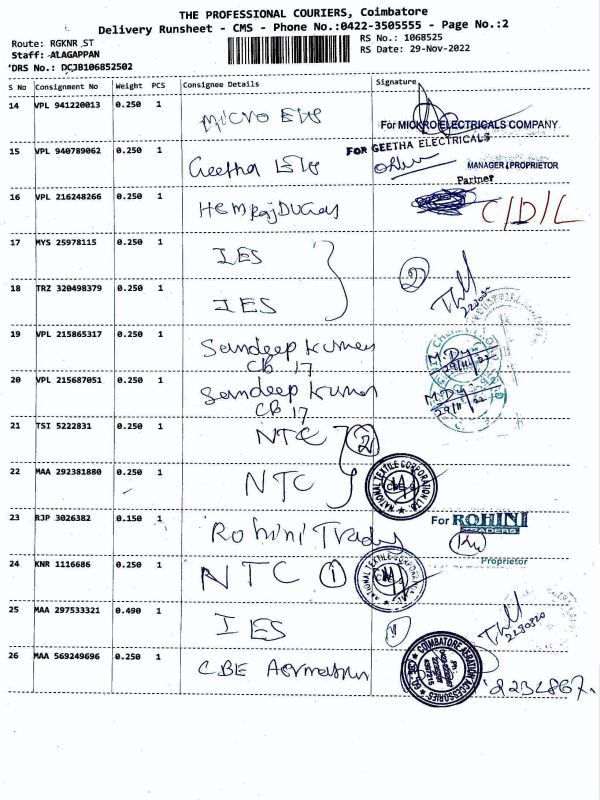 THE PROFESSIONAL COURIERS, Coimbatore
Delivery Runsheet - CMS - Phone No.:0422-3505555 - Page No.:2
Route: RGKNR_ST
RS No.: 1068525
Staff: ALAGAPPAN
RS Date: 29-Nov-2022
DRS No.: DCJB106852502
S No Consignment No Weight PCS Consignee Details Signature
14 VPL 941220013 0.250 1 Micro Ele
For MICRO ELECTRICALS COMPANY
FOR GEETHA ELECTRICALS
15 VPL 940789062 0.250 1 Geetha Ele
MANAGER / PROPRIETOR
Partner
16 VPL 216248266 0.250 1 Hemraj C/D/L
17 MYS 25978115 0.250 1 IES 2
18 TRZ 320498379 0.250 1 IES
19 VPL 215865317 0.250 1 Sandeep Kumar
CB 17
29/11/22
20 VPL 215687051 0.250 1 Sandeep Kumar
CB 17
29/11/22
21 TSI 5222831 0.250 1 NTC 2
22 MAA 292381880 0.250 1 NTC
NATIONAL TEXTILE CORPORATION LTD.
23 RJP 3026382 0.150 1 Rohini Traders
For ROHINI TRADERS
Proprietor
24 KNR 1116686 0.250 1 NTC 1
25 MAA 297533321 0.490 1 IES
26 MAA 569249696 0.250 1 CBE
COIMBATORE AERATION ACCESSORIES